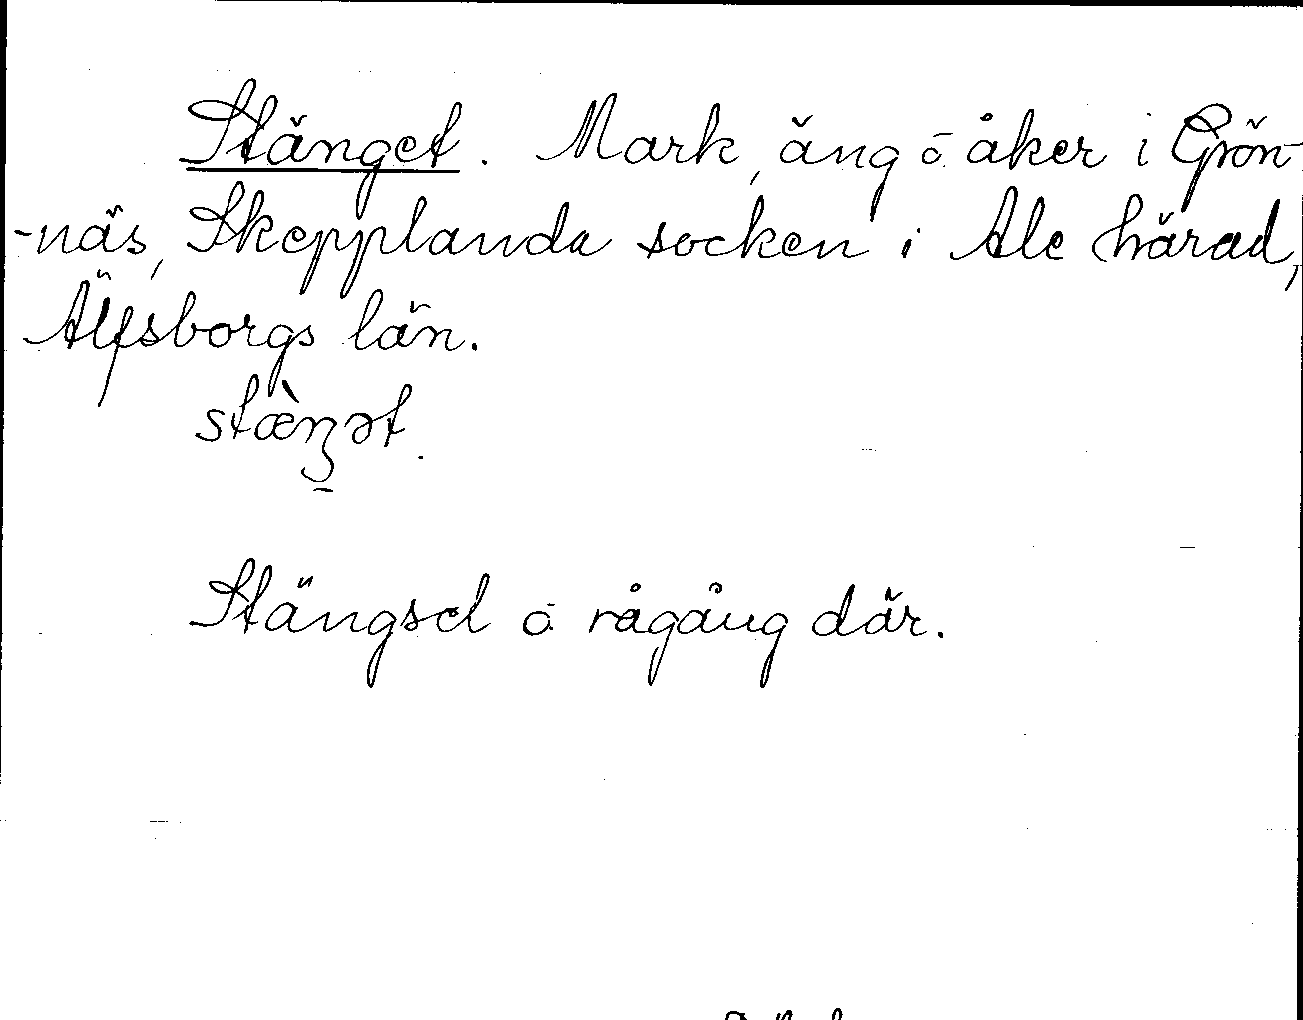 Stänget. Mark, äng o åker i Grön-
-näs, Skepplanda socken i Ale härad,
Älfsborgs län.
stæ̀ŋət.
Stängsel o rågång där.